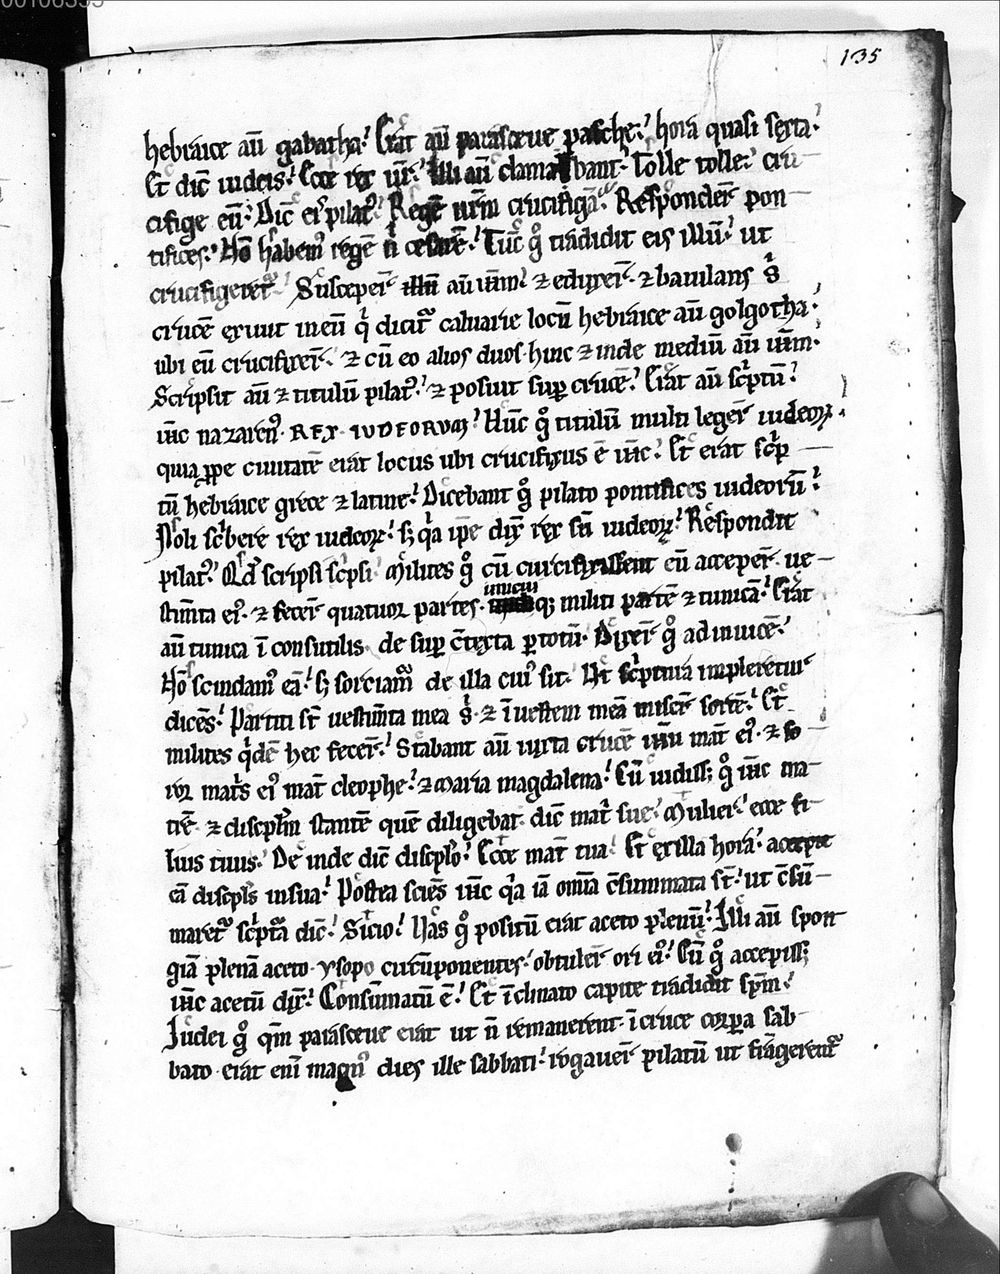 00106355
135
hebraice au̅ gabatha. Erat au̅ parasceue pasche. hora quasi sexta.
Et dic̅ iudeis. Ecce rex ur̅. Illi au̅ clamabant. Tolle tolle. cru
cifige eu̅. Dic̅ eis pilatꝰ. Rege̅ ur̅m crucifiga̅. Responder̅ pon
tifices. No̅ habemꝰ rege̅ n̅ cesare̅. Tu̅c gͦ tradidit eis illu̅. ut
crucifigeret̅. Susceper̅ au̅ ih̅m. ⁊ eduxer̅. ⁊ baiulans s̍
cruce̅ exiuit in eu̅ q̍ dicit̅ caluarie locu̅ hebraice au̅ golgotha.
ubi eu̅ crucifixer̅. ⁊ cu̅ eo alios duos hinc ⁊ inde mediu̅ au̅ ih̅m.
Scripsit au̅ ⁊ titulu̅ pilatꝰ. ⁊ posuit sup̅ cruce̅. Erat au̅ sc̍ptu̅.
ih̅c nazarenꝰ. REX IVDEORVM. Hu̅c gͦ titulu̅ multi leger̅ iudeoꝝ.
quia ꝓpe ciuitate̅ erat locus ubi crucifixus e̅ ih̅c. Et erat sc̍p
tu̅ hebraice grece ⁊ latine. Dicebant gͦ pilato pontifices iudeoru̅.
Noli sc̍bere rex iudeoꝝ. sꝫ q̍a ip̅e dix̅ rex su̅ iudeoꝝ. Respondit
pilatꝰ. Qd̅ scripsi sc̍psi. Milites gͦ cu̅ crucifixissent eu̅ acceper̅ ue
stim̅ta eiꝰ. ⁊ fecer̅ quatuor partes.
unicui
qꝫ militi parte̅ ⁊ tunica̅. Erat
au̅ tunica i̅consutilis. de sup̅ c̅texta ꝑ totu̅. Dixer̅ gͦ ad inuice̅.
No̅ scindamꝰ ea̅. sꝫ sorciamꝰ de illa cuiꝰ sit. Ut sc̍ptura impleretur
dice̅s. Partiti st̅ uestim̅ta mea s̍. ⁊ i̅ ueste̅ mea̅ miser̅ sorte̅. Et
milites q̍de̅ hec fecer̅. Stabant au̅ iuxta cruce̅ ih̅u mat̅ eiꝰ. ⁊ so
ror mat̍s eiꝰ mat̅ cleophe. ⁊ maria magdalena. Cu̅ uidissꝫ gͦ ih̅c ma
tre̅. ⁊ discipl̅m stante̅ que̅ diligebat. dic̅ mat̍ sue. Mulier. ecce fi
lius tuus. De inde dic̅ discipl̅o. Ecce mat̅ tua. Et ex illa hora. accepit
ea̅ discipl̅s in sua. Postea scie̅s ih̅c q̍a ia̅ om̅ia c̅summata st̅. ut c̅su̅
maret̅ sc̍pta̅ dic̅. Sicio. Uas gͦ positu̅ erat aceto plenu̅. Illi au̅ spon
gia̅ plena̅ aceto. ysopo circu̅ponentes. obtuler̅ ori eiꝰ. Cu̅ gͦ accepissꝫ
ih̅c acetu̅ dix̅. Consu̅matu̅ e̅. Et i̅clinato capite tradidit sp̅m.
Iudei gͦ qm̅ parasceue erat ut n̅ remanerent. i̅ cruce corꝑa sab
bato. erat eni̅ magnꝰ dies ille sabbati. rogauer̅ pilatu̅ ut frangerent̅